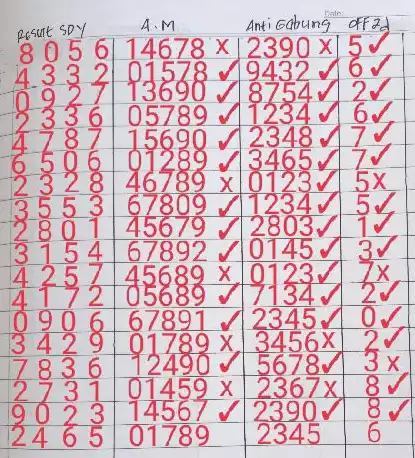 Date:
Result SDY A.M Anti Gabung OFF 2d
8056 14678 x 2390 x 5 ✓
4332 01578 ✓ 9432 ✓ 6 ✓
0927 13690 ✓ 8754 ✓ 2 ✓
2336 05789 ✓ 1234 ✓ 6 ✓
4787 15690 ✓ 2348 ✓ 7 ✓
6506 01289 ✓ 3465 ✓ 7 ✓
2328 46789 x 0123 ✓ 5 x
3553 67809 ✓ 1234 ✓ 5 ✓
2801 45679 ✓ 2803 ✓ 1 ✓
3154 67892 ✓ 0145 ✓ 3 ✓
4257 45689 x 0123 ✓ 7 x
4172 05689 ✓ 7134 ✓ 2 ✓
0906 67891 ✓ 2345 ✓ 0 ✓
3429 01789 x 3456 x 2 ✓
7836 12490 ✓ 5678 ✓ 3 x
2731 01459 x 2367 x 8 ✓
9023 14567 ✓ 2390 ✓ 8 ✓
2465 01789 2345 6